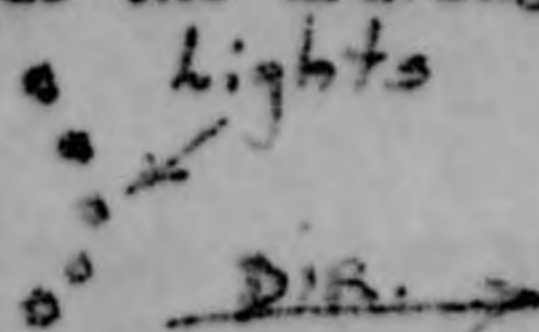 Lights
DIR.